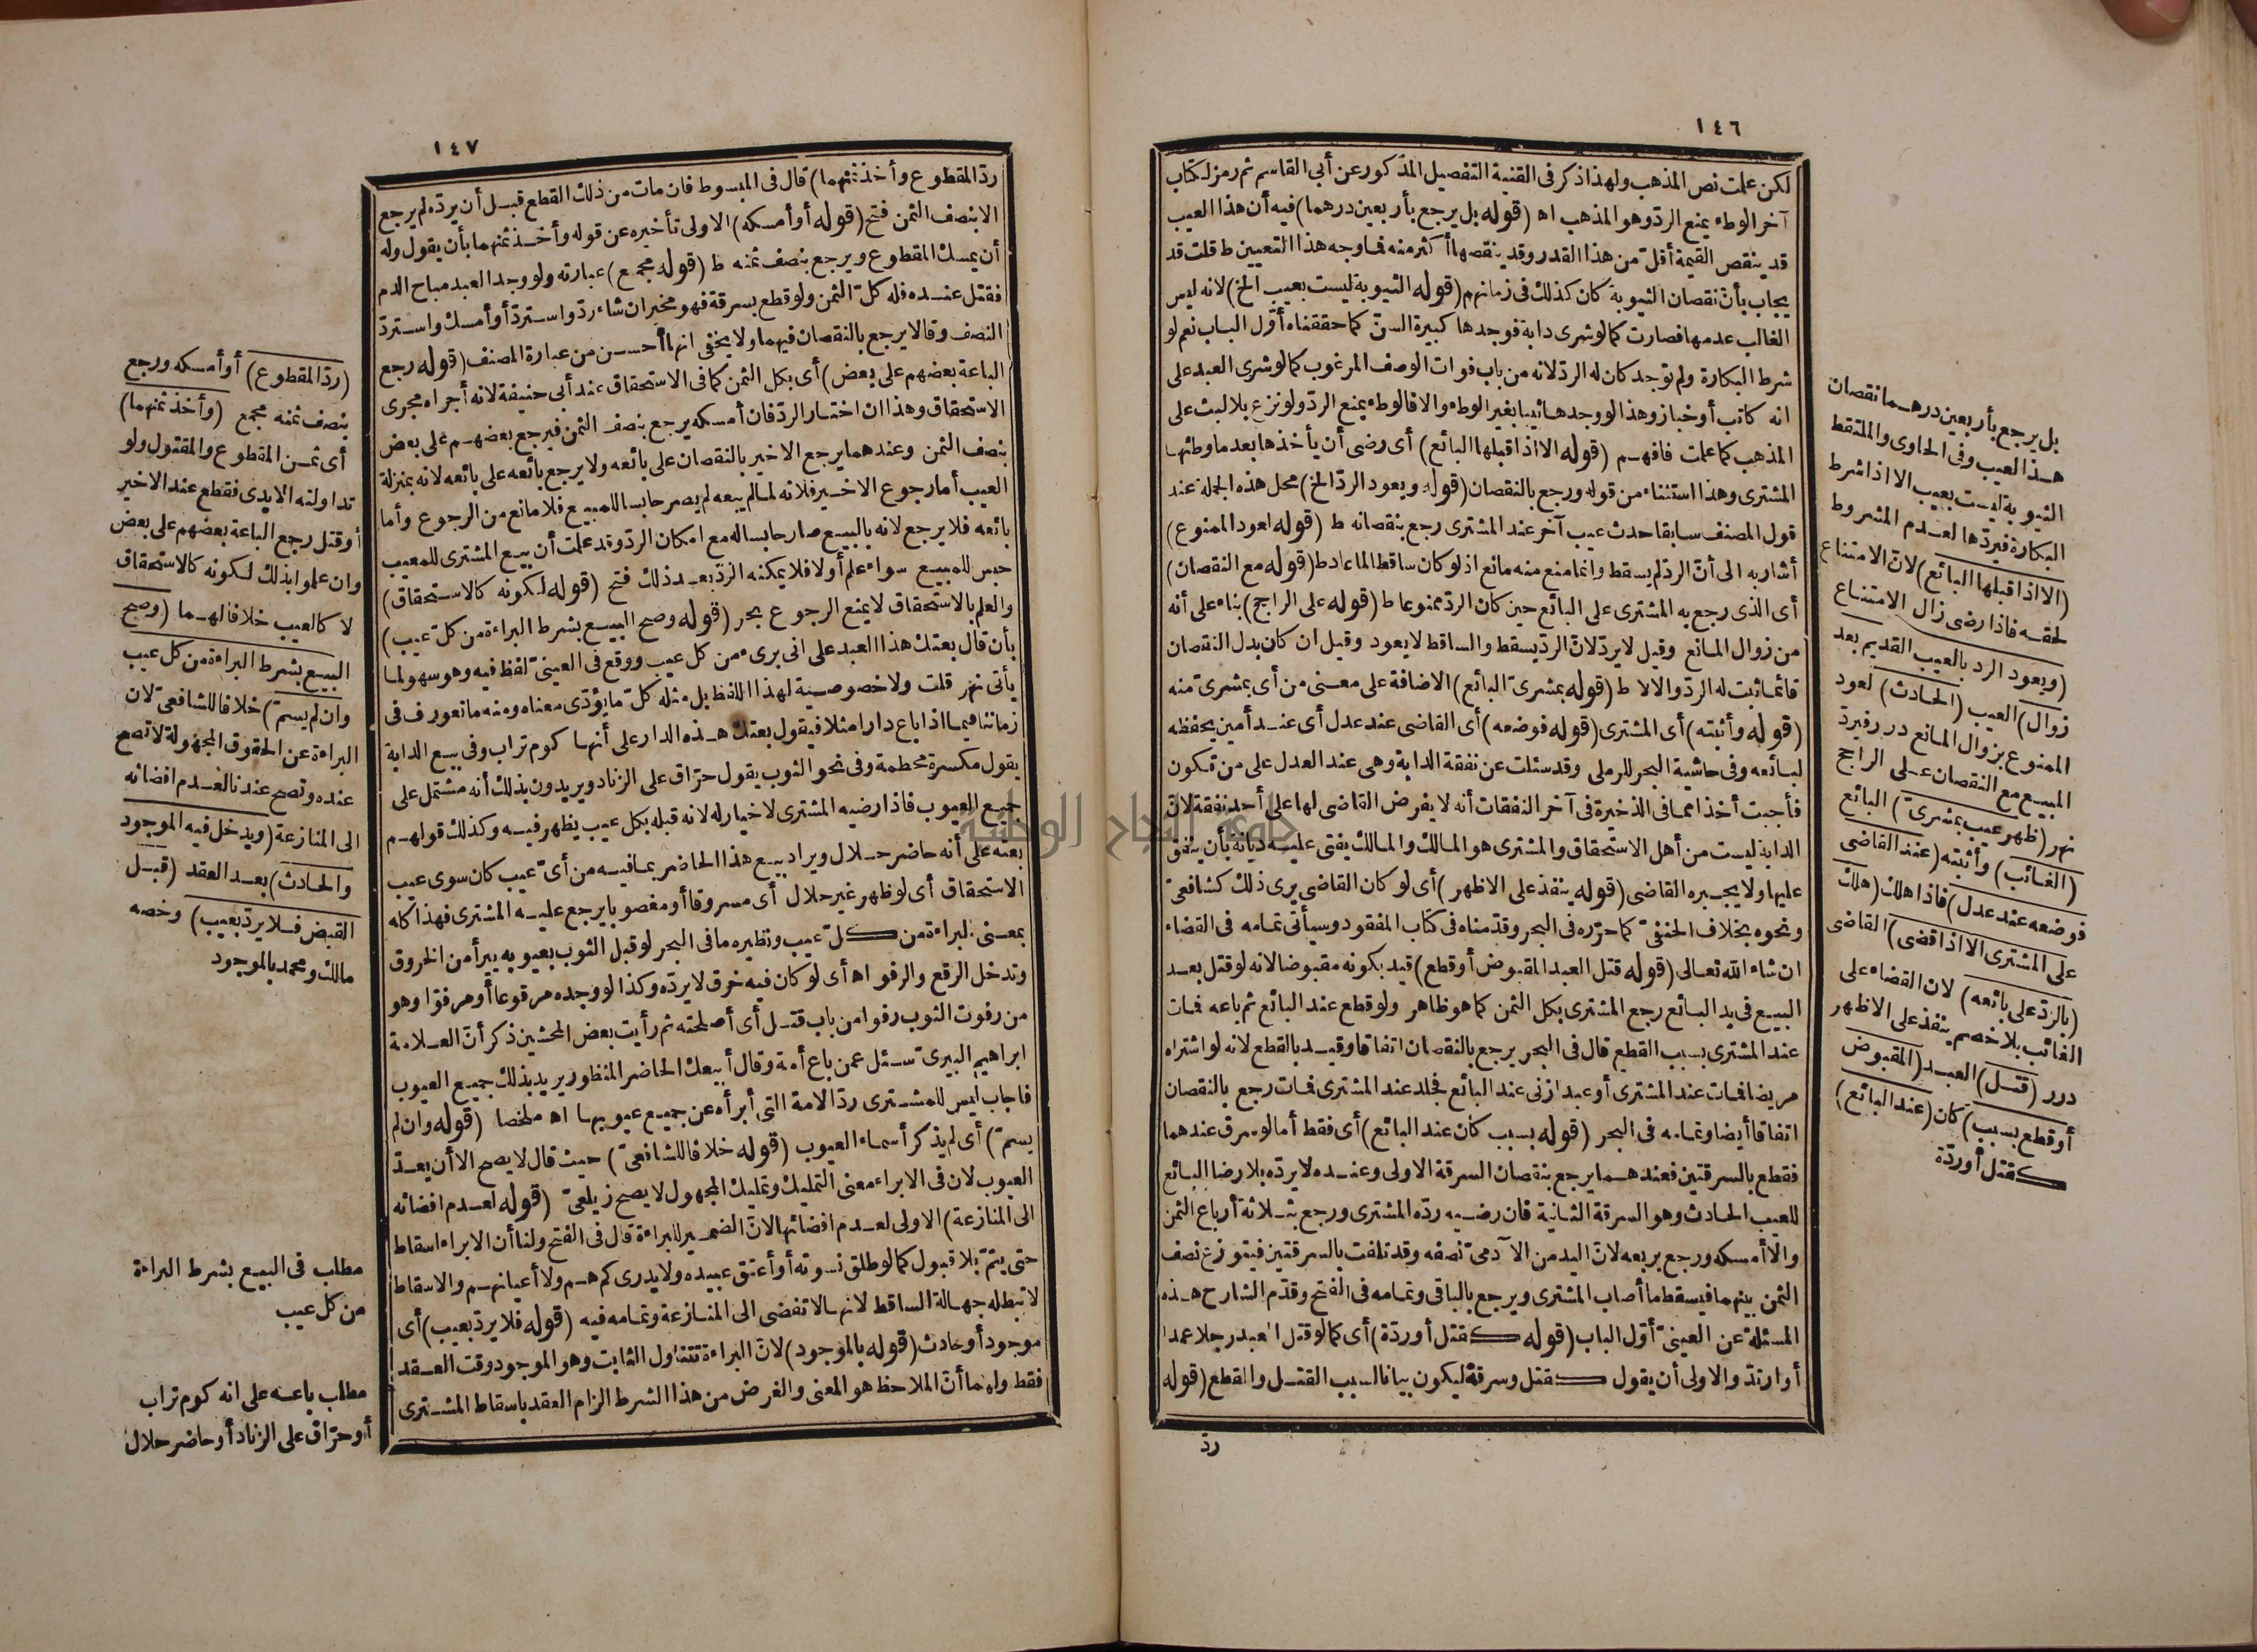 ١٤٦
لكن علمت نص المذهب ولهذا ذكر فى القنية التفصيل المذكور عن أبى القاسم ثم رمز لكتاب
آخر الوطء يمنع الردّ وهو المذهب اه (قوله بل يرجع بأربعين درهما) فيه أن هذا العيب
قد ينقص القيمة أقلّ من هذا القدر وقد ينقصها أكثر منه فما وجه هذا التعيين ط قلت قد
يجاب بأن نقصان الثيوبة كان كذلك فى زمانهم (قوله الثيوبة ليست بعيب الخ) لانه ليس
الغالب عدمها فصارت كما لو شرى دابة فوجدها كبيرة السنّ كما حققناه أوّل الباب نعم لو
شرط البكارة ولم توجد كان له الرد لانه من باب فوات الوصف المرغوب كما لو شرى العبد على
انه كاتب أو خباز وهذا لو وجدها ثيبا بغير الوطء والا فالوطء يمنع الردّ ولو نزع بلا لبث على
المذهب كما علمت فافهم (قوله الا اذا قبلها البائع) أى رضى أن يأخذها بعد ما وطئها
المشترى وهذا استثناء من قوله ورجع بالنقصان (قوله ويعود الردّ الخ) محل هذه الجملة عند
قول المصنف سابقا حدث عيب آخر عند المشترى رجع بنقصانه ط (قوله لعود الممنوع)
أشار به الى أنّ الردّ لم يسقط وانما منع منه مانع اذ لو كان ساقطا لما عاد ط (قوله مع النقصان)
أى الذى رجع به المشترى على البائع حين كان الردّ ممنوعا ط (قوله على الراجح) بناء على أنه
من زوال المانع وقيل لا يردّ لانّ الردّ يسقط والساقط لا يعود وقيل ان كان بدل النقصان
قائما ثبت له الردّ والا لا ط (قوله بمشرىّ البائع) الاضافة على معنى من أى بمشرىّ منه
(قوله وأثبته) أى المشترى (قوله فوضعه) أى القاضى عند عدل أى عند أمين يحفظه
لبائعه وفى حاشية البحر للرملى وقد سئلت عن نفقة الدابة وهى عند العدل على من تكون
فأجبت أخذا مما فى الذخيرة فى آخر النفقات أنه لا يفرض القاضى لها على أحد نفقة لانّ
الدابة ليست من أهل الاستحقاق والمشترى هو المالك والمالك يفتى عليه ديانة بأن ينفق
عليها ولا يجبره القاضى (قوله ينفذ على الاظهر) أى لو كان القاضى يرى ذلك كشافعىّ
ونحوه بخلاف الحنفىّ كما حرّره فى البحر وقدّمناه فى كتاب المفقود وسيأتى تمامه فى القضاء
ان شاء الله تعالى (قوله قتل العبد المقبوض أو قطع) قيد بكونه مقبوضا لانه لو قتل بعد
البيع فى يد البائع رجع المشترى بكل الثمن كما هو ظاهر ولو قطع عند البائع ثم باعه فمات
عند المشترى بسبب القطع قال فى البحر يرجع بالنقصان اتفاقا وقيد بالقطع لانه لو اشتراه
مريضا فمات عند المشترى أو عبدا زنى عند البائع فجلد عند المشترى فمات رجع بالنقصان
اتفاقا أيضا وتمامه فى البحر (قوله بسبب كان عند البائع) أى فقط أما لو سرق عندهما
فقطع بالسرقتين فعندهما يرجع بنقصان السرقة الاولى وعنده لا يردّه بلا رضا البائع
للعيب الحادث وهو السرقة الثانية فان رضيه ردّه المشترى ورجع بثلاثة أرباع الثمن
والا أمسكه ورجع بربعه لانّ اليد من الآدمىّ نصفه وقد تلفت بالسرقتين فيتوزع نصف
الثمن بينهما فيسقط ما أصاب المشترى ويرجع بالباقى وتمامه فى الفتح وقدّم الشارح هذه
المسئلة عن العينىّ أوّل الباب (قوله كقتل أو ردّة) أى كما لو قتل العبد رجلا عمدا
أو ارتدّ والاولى أن يقول كقتل وسرقة ليكون بيانا لسبب القتل والقطع (قوله
ردّ
بل يرجع بأربعين درهما نقصان
هذا العيب وفى الحاوى والملتقط
الثيوبة ليست بعيب الا اذا شرط
البكارة فيردّها لعدم المشروط
(الا اذا قبلها البائع) لانّ الامتناع
لحقه فاذا رضى زال الامتناع
(ويعود الرد بالعيب القديم بعد
زوال) العيب (الحادث) لعود
الممنوع بزوال المانع درر فيردّ
المبيع مع النقصان على الراجح
نهر (ظهر عيب بمشرىّ) البائع
(الغائب) وأثبته (عند القاضى
فوضعه عند عدل) فاذا هلك (هلك
على المشترى الا اذا قضى) القاضى
(بالردّ على بائعه) لان القضاء على
الغائب بلا خصم ينفذ على الاظهر
درر (قتل) العبد (المقبوض
أو قطع بسبب) كان (عند البائع)
كقتل أو ردّة
١٤٧
ردّ المقطوع وأخذ ثمنهما) قال فى المبسوط فان مات من ذلك القطع قبل أن يردّه لم يرجع
الا بنصف الثمن فتح (قوله أو أمسكه) الاولى تأخيره عن قوله وأخذ ثمنهما بأن يقول وله
أن يمسك المقطوع ويرجع بنصف ثمنه ط (قوله مجمع) عبارته ولو وجد العبد مباح الدم
فقتل عنده فله كلّ الثمن ولو قطع بسرقة فهو مخير ان شاء ردّ واستردّ أو أمسك واستردّ
النصف وقالا يرجع بالنقصان فيهما ولا يخفى انها أحسن من عبارة المصنف (قوله رجع
الباعة بعضهم على بعض) أى بكل الثمن كما فى الاستحقاق عند أبى حنيفة لانه أجراه مجرى
الاستحقاق وهذا ان اختار الردّ فان أمسكه يرجع بنصف الثمن فيرجع بعضهم على بعض
بنصف الثمن وعندهما يرجع الاخير بالنقصان على بائعه ولا يرجع بائعه على بائعه لانه بمنزلة
العيب أما رجوع الاخير فلانه لما لم يبعه لم يصر حابسا للمبيع فلا مانع من الرجوع وأما
بائعه فلا يرجع لانه بالبيع صار حابسا له مع امكان الردّ وقد علمت أن بيع المشترى للمعيب
حبس للمبيع سواء علم أو لا فلا يمكنه الردّ بعد ذلك فتح (قوله لكونه كالاستحقاق)
والعلم بالاستحقاق لا يمنع الرجوع بحر (قوله وصح البيع بشرط البراءة من كلّ عيب)
بأن قال بعتك هذا العبد على انى برىء من كل عيب ووقع فى العينىّ لفظ فيه وهو سهو لما
يأتى نهر قلت ولا خصوصية لهذا اللفظ بل مثله كلّ ما يؤدّى معناه ومنه ما تعورف فى
زماننا فيما اذا باع دارا مثلا فيقول بعتك هذه الدار على أنها كوم تراب وفى بيع الدابة
يقول مكسرة محطمة وفى نحو الثوب يقول حرّاق على الزناد ويريدون بذلك أنه مشتمل على
جميع العيوب فاذا رضيه المشترى لا خيار له لانه قبله بكل عيب يظهر فيه وكذلك قولهم
بعته على أنه حاضر حلال ويراد بيع هذا الحاضر بما فيه من أىّ عيب كان سوى عيب
الاستحقاق أى لو ظهر غير حلال أى مسروقا أو مغصوبا يرجع عليه المشترى فهذا كله
بمعنى البراءة من كلّ عيب ونظيره ما فى البحر لو قبل الثوب بعيوبه يبرأ من الخروق
وتدخل الرقع والرفو اه أى لو كان فيه خرق لا يردّه وكذا لو وجده مرقوعا أو مرفوّا وهو
من رفوت الثوب رفوا من باب قتل أى أصلحته ثم رأيت بعض المحشين ذكر أنّ العلامة
ابراهيم البيرىّ سئل عمن باع أمة وقال أبيعك الحاضر المنظور يريد بذلك جميع العيوب
فاجاب ليس للمشترى ردّ الامة التى أبرأه عن جميع عيوبها اه ملخصا (قوله وان لم
يسمّ) أى لم يذكر أسماء العيوب (قوله خلافا للشافعىّ) حيث قال لا يصح الا أن يعدّ
العيوب لان فى الابراء معنى التمليك وتمليك المجهول لا يصح زيلعىّ (قوله لعدم افضائه
الى المنازعة) الاولى لعدم افضائها لانّ الضمير للبراءة قال فى الفتح ولنا أن الابراء اسقاط
حتى يتمّ بلا قبول كما لو طلق نسوته أو أعتق عبيده ولا يدرى كم هم ولا أعيانهم والاسقاط
لا تبطله جهالة الساقط لانها لا تفضى الى المنازعة وتمامه فيه (قوله فلا يردّ بعيب) أى
موجود أو حادث (قوله بالموجود) لانّ البراءة تتناول الثابت وهو الموجود وقت العقد
فقط ولهما أنّ الملاحظ هو المعنى والغرض من هذا الشرط الزام العقد باسقاط المشترى
(ردّ المقطوع) أو أمسكه ورجع
بنصف ثمنه مجمع (وأخذ ثمنهما)
أى ثمن المقطوع والمقتول ولو
تداولته الايدى فقطع عند الاخير
أو قتل رجع الباعة بعضهم على بعض
وان علموا بذلك لكونه كالاستحقاق
لا كالعيب خلافا لهما (وصح
البيع بشرط البراءة من كل عيب
وان لم يسمّ) خلافا للشافعىّ لان
البراءة عن الحقوق المجهولة لا تصح
عنده وتصح عندنا لعدم افضائه
الى المنازعة (ويدخل فيه الموجود
والحادث) بعد العقد (قبل
القبض فلا يردّ بعيب) وخصه
مالك ومحمد بالموجود
مطلب فى البيع بشرط البراءة
من كل عيب
مطلب باعه على انه كوم تراب
أو حرّاق على الزناد أو حاضر حلال